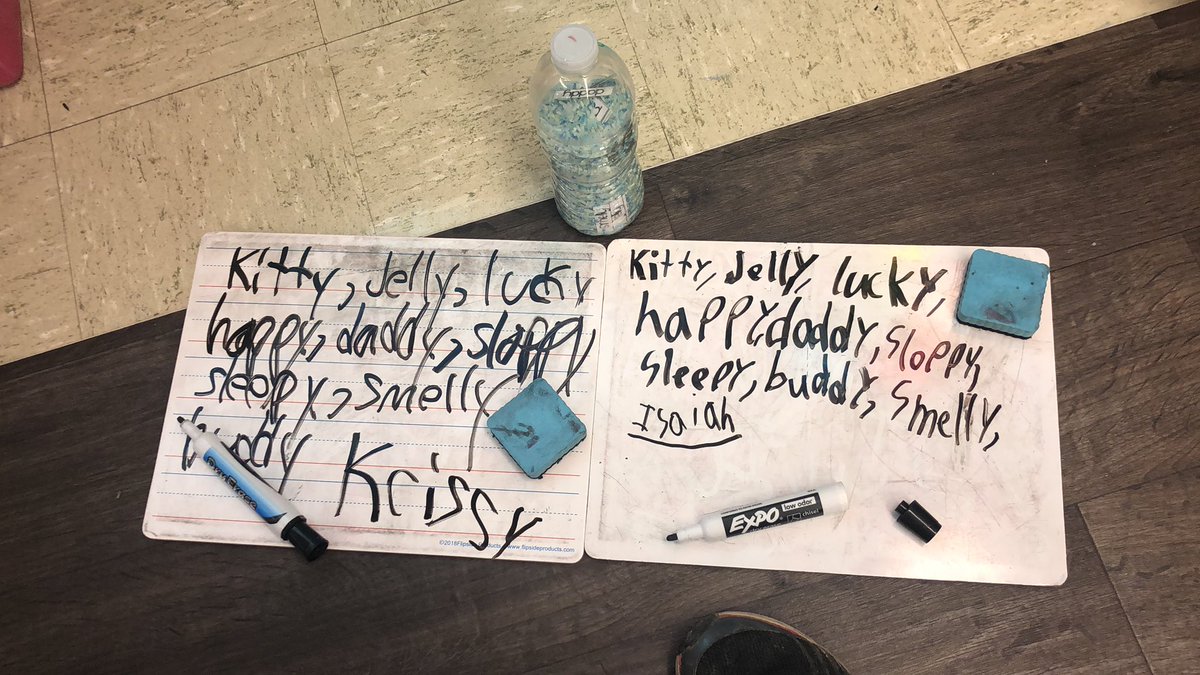 Kitty, Jelly, lucky
happy, daddy, sloppy,
sleepy, smelly
buddy Krissy
©2018Flipside products www.flipsideproducts.com
Kitty, Jelly, lucky,
happy, daddy, sloppy,
sleepy, buddy, smelly,
Isaiah
EXPO low odor
chisel
daddy